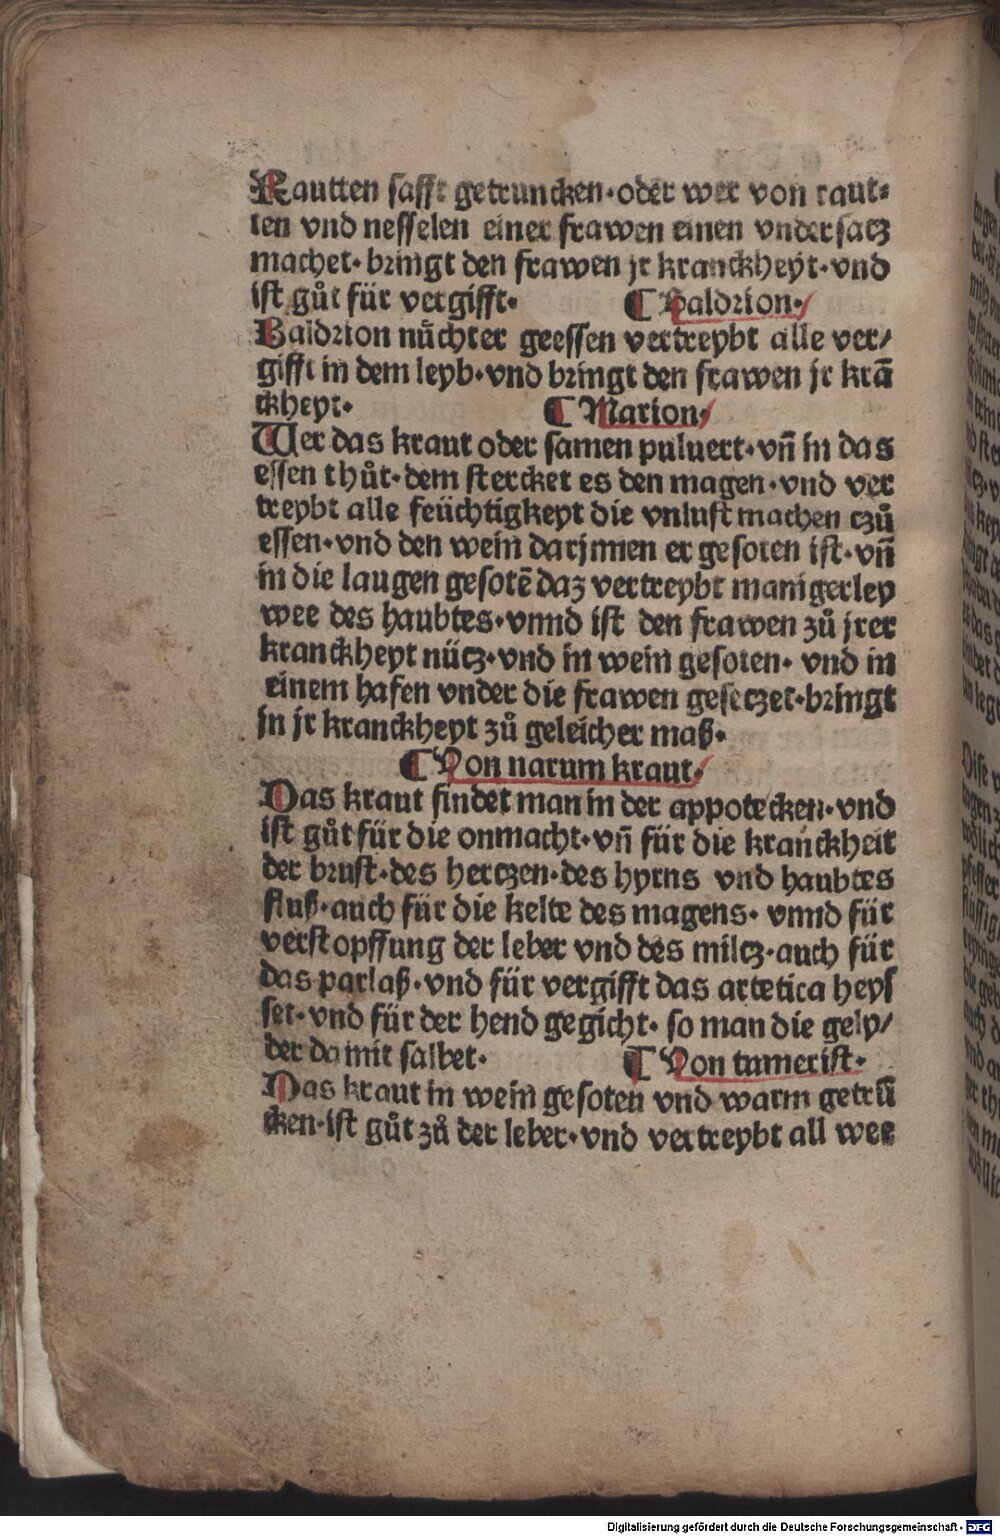 Rautten safft getruncken·oder wer von raut⸗
ten vnd nesselen einer frawen einen vndersatz
machet·bringt den frawen jr kranckheyt·vnd
ist gůt für vergifft· ¶ Baldrion·
Baldrion nůchter geessen vertreybt alle ver/
gifft in dem leyb·vnd bringt den frawen jr krā
ckheyt· ¶ Marion·
Wer das kraut oder samen puluert·vn̄ in das
essen thůt·dem stercket es den magen·vnd ver
treybt alle feüchtigkeyt die vnlust machen czů
essen·vnd den wein darjnnen er gesoten ist·vn̄
in die laugen gesotē daz vertreybt manigerley
wee des haubtes·vnnd ist den frawen zů jrer
kranckheyt nütz·vnd in wein gesoten· vnd in
einem hafen vnder die frawen gesetzet·bringt
in jr kranckheyt zů geleicher maß·
¶ Von narum kraut·
Das kraut findet man in der appotecken·vnd
ist gůt für die onmacht·vn̄ für die kranckheit
der brust·des hertzen·des hyrns vnd haubtes
fluß·auch für die kelte des magens·vnnd für
verstopffung der leber vnd des miltz·auch für
das parlaß·vnd für vergifft das artetica heys
set·vnd für der hend gegicht· so man die gely/
der da mit salbet· ¶ Von tamerist·
Das kraut in wein gesoten vnd warm getrū
cken·ist gůt zů der leber·vnd vertreybt all wee
Digitalisierung gefördert durch die Deutsche Forschungsgemeinschaft - DFG